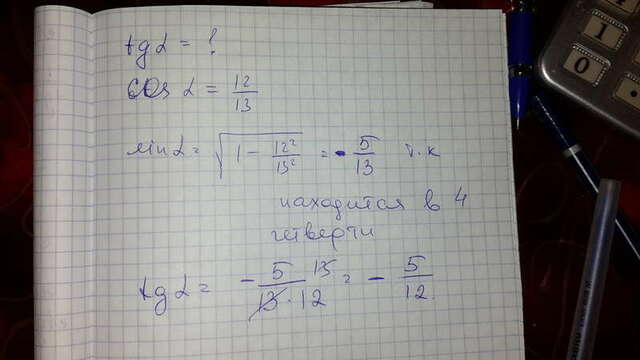 tg α = ?
cos α = 12/13
sin α = √(1 - 12²/13²) = - 5/13 т.к
находится в 4
четверти
tg α = - 5 · 13 / 13 · 12 = - 5/12
1
0